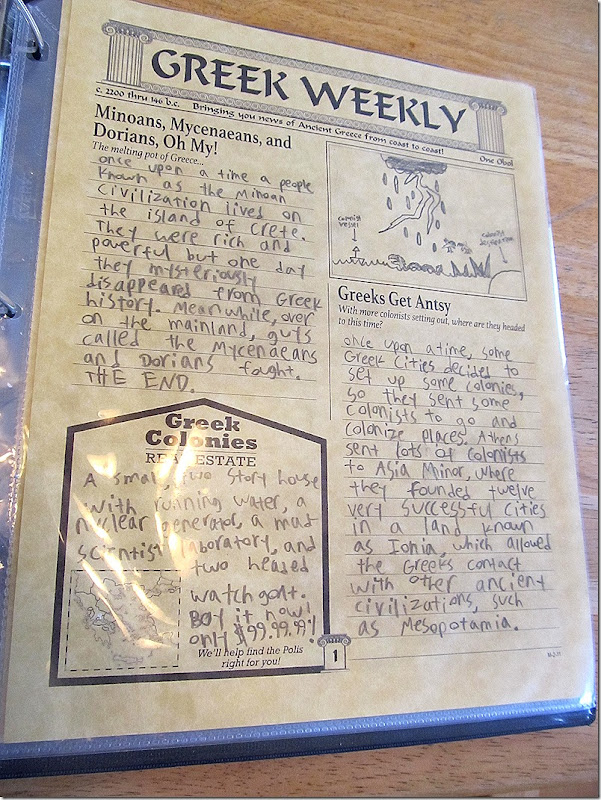 GREEK WEEKLY
c. 2200 thru 146 b.c. Bringing you news of Ancient Greece from coast to coast!
One Obol
Minoans, Mycenaeans, and
Dorians, Oh My!
The melting pot of Greece...
once upon a time a people
known as the Minoan
civilization lived on
the island of Crete.
They were rich and
powerful but one day
they mysteriously
disappeared from Greek
history. Meanwhile, over
on the mainland, guys
called the Mycenaeans
and Dorians fought.
THE END.
Greek
Colonies
REAL ESTATE
A small two story house
with running water, a
nuclear generator, a mad
scientist laboratory, and
two headed
watch goat.
Boy it now!
only $99.99.99!
We'll help find the Polis
right for you!
colonist
vessel
colonist
Greeks Get Antsy
With more colonists setting out, where are they headed
to this time?
once upon a time, some
Greek Cities decided to
set up some colonies,
so they sent some
colonists to go and
colonize places. Athens
sent lots of colonists
to Asia Minor, where
they founded twelve
very successful cities
in a land known
as Ionia, which allowed
the Greeks contact
with other ancient
civilizations, such
as Mesopotamia.
1